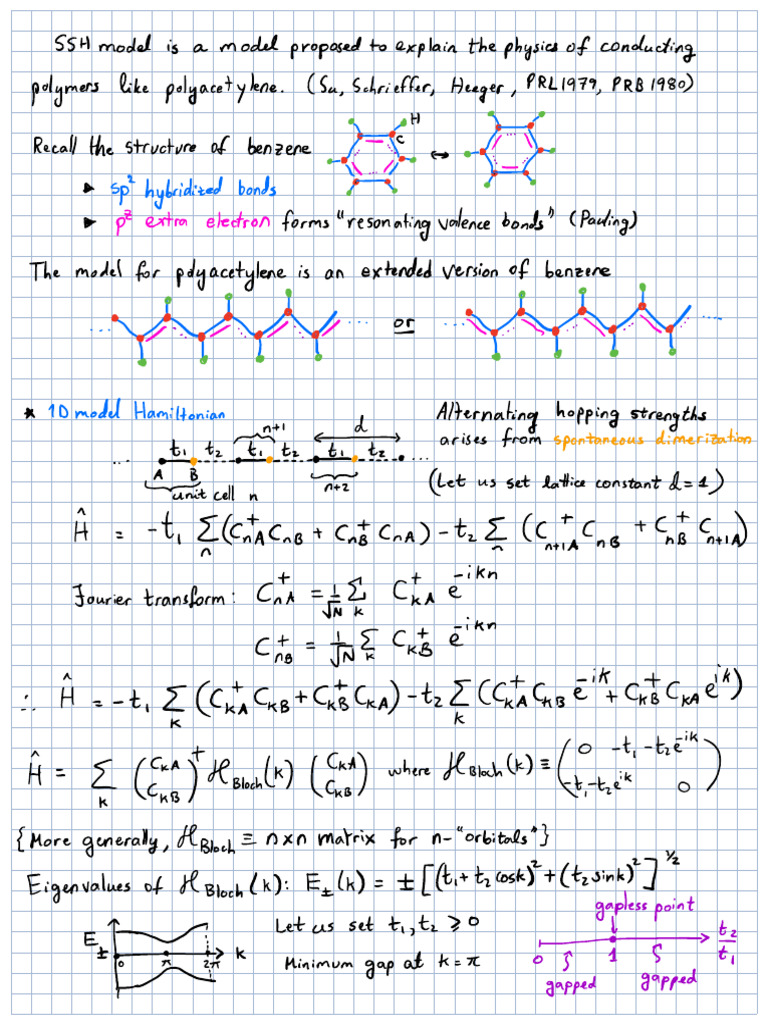 SSH model is a model proposed to explain the physics of conducting
polymers like polyacetylene. (Su, Schrieffer, Heeger, PRL1979, PRB 1980)
H
C
Recall the structure of benzene ↔
► sp² hybridized bonds
► pᶻ extra electron forms "resonating valence bonds" (Pauling)
The model for polyacetylene is an extended version of benzene
... or ...
* 1D model Hamiltonian
Alternating hopping strengths
arises from spontaneous dimerization
(Let us set lattice constant d=1)
n+1 d
t₁ t₂ t₁ t₂ t₁ t₂
... A B ...
unit cell n n+2
Ĥ = -t₁ ∑_n (C_{nA}^+ C_{nB} + C_{nB}^+ C_{nA}) - t₂ ∑_n (C_{n+1A}^+ C_{nB} + C_{nB}^+ C_{n+1A})
Fourier transform: C_{nA}^+ = 1/√N ∑_k C_{kA}^+ e^{-ikn}
C_{nB}^+ = 1/√N ∑_k C_{kB}^+ e^{-ikn}
∴ Ĥ = -t₁ ∑_k (C_{kA}^+ C_{kB} + C_{kB}^+ C_{kA}) - t₂ ∑_k (C_{kA}^+ C_{kB} e^{-ik} + C_{kB}^+ C_{kA} e^{ik})
Ĥ = ∑_k (C_{kA} C_{kB})^+ ℋ_{Bloch}(k) (C_{kA} C_{kB}) where ℋ_{Bloch}(k) ≡ (0 -t₁-t₂e^{-ik} -t₁-t₂e^{ik} 0)
{More generally, ℋ_{Bloch} ≡ n×n matrix for n-"orbitals"}
Eigenvalues of ℋ_{Bloch}(k): E_±(k) = ±[(t₁+t₂cosk)²+(t₂sink)²]^{1/2}
E_± 0 π 2π k
Let us set t₁,t₂ ⩾ 0
Minimum gap at k=π
gapless point
0 1 t₂/t₁
gapped gapped